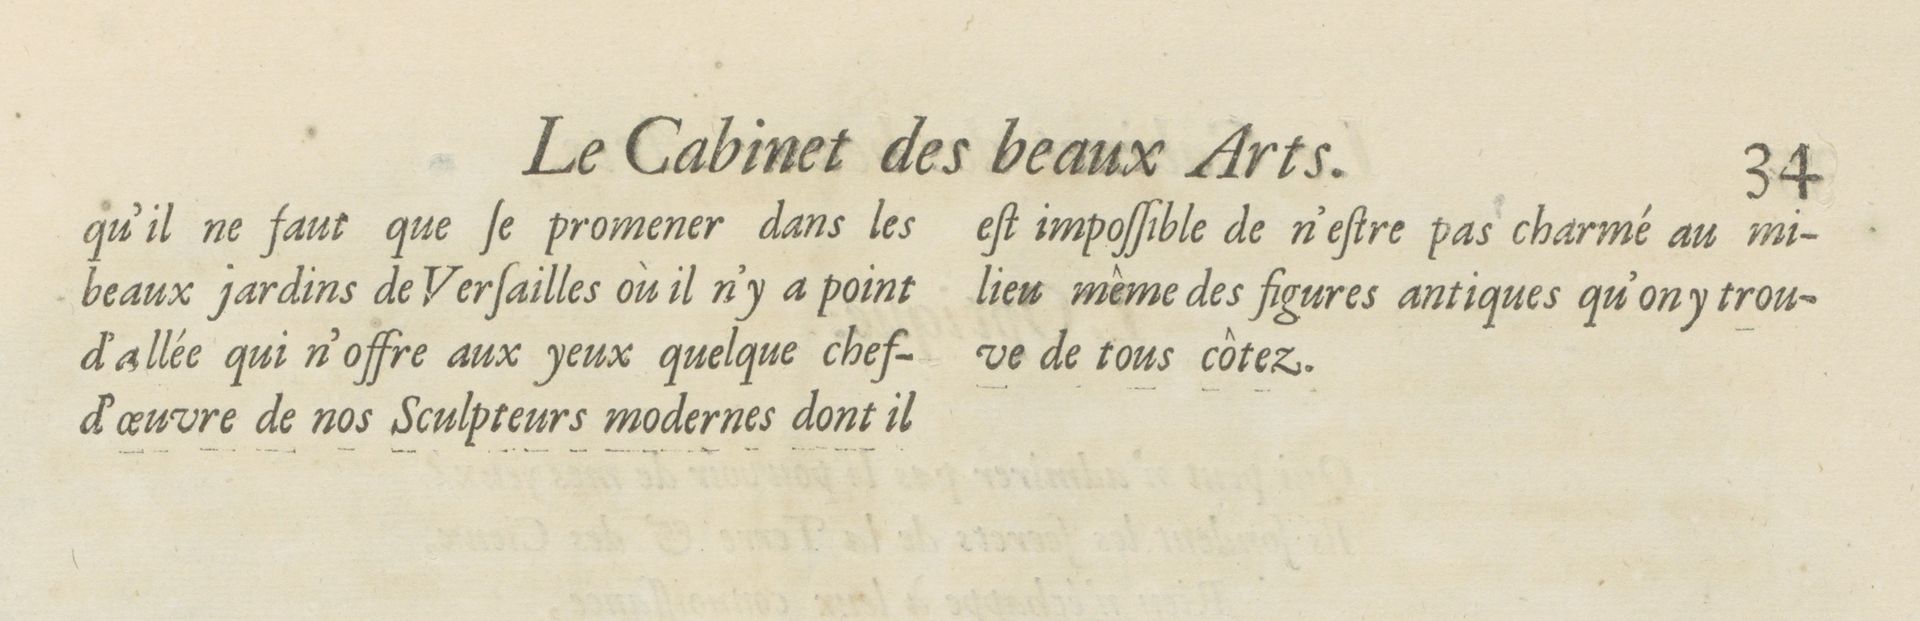 Le Cabinet des beaux Arts.
34
qu'il ne faut que ſe promener dans les
beaux jardins de Verſailles où il n'y a point
d'allée qui n'offre aux yeux quelque chef-
d'œuvre de nos Sculpteurs modernes dont il
eſt impoſſible de n'eſtre pas charmé au mi-
lieu même des figures antiques qu'on y trou-
ve de tous côtez.